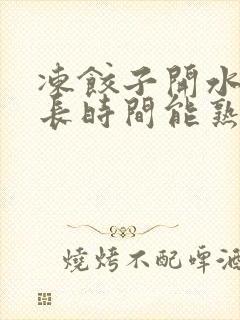 凍餃子開水
長時間能熟
燒烤不配啤酒